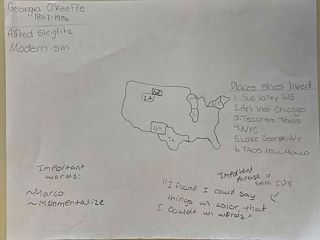 Georgia O'Keeffe
1887-1986
Alfred Stieglitz
Modernism
Places shes lived
1. Sun Valley WS
2. Art Inst Chicago
3. Teachers Texas
4. NYC
5. Lake George, Ny
6. Taos
WI
IA
NM
TX
Important
words:
~Marco
~Monmentalize
Important
Phrase or
Smth IDK
"I found I could say
things w/ color that
I couldt w/ words."